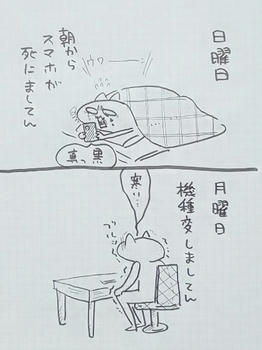 日曜日
朝から
スマホが
死にましてん
ウワーー
真っ黒
月曜日
機種変しましてん
寒い…
ブルッ